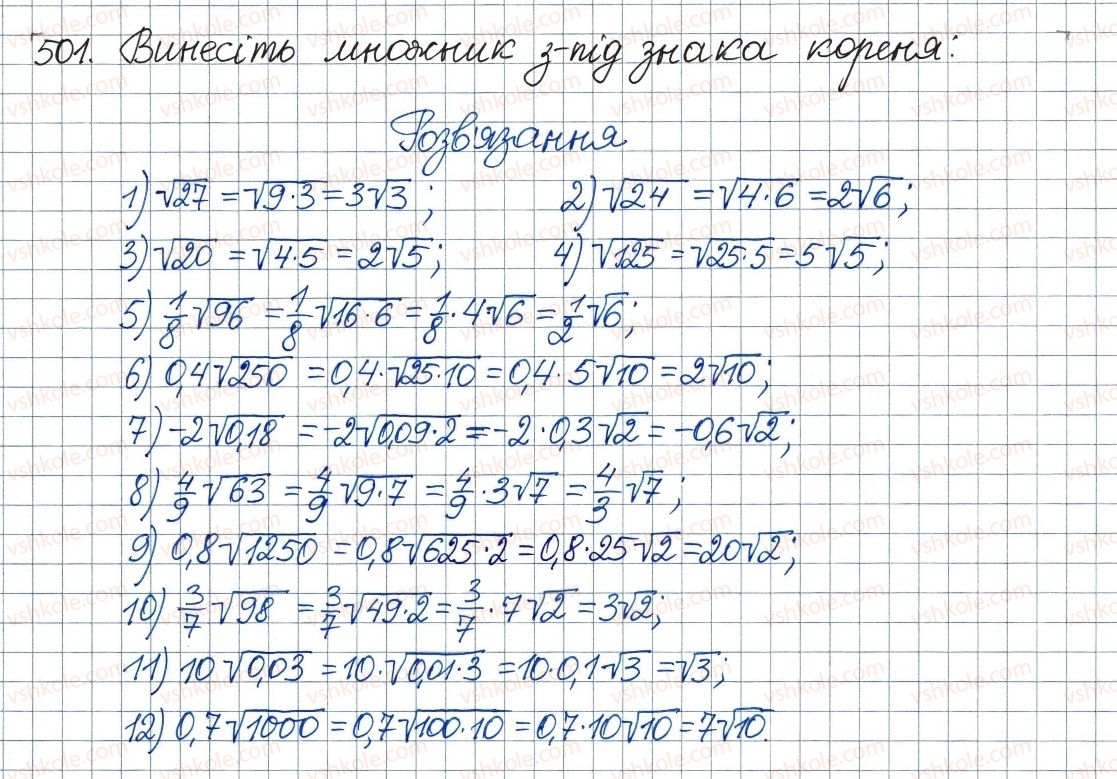 501. Винесіть множник з-під знака кореня:
Розв'язання
1) √27 = √9·3 = 3√3 ; 2) √24 = √4·6 = 2√6;
3) √20 = √4·5 = 2√5; 4) √125 = √25·5 = 5√5;
5) 1/8 √96 = 1/8 √16·6 = 1/8 · 4√6 = 1/2 √6;
6) 0,4√250 = 0,4·√25·10 = 0,4·5√10 = 2√10;
7) -2√0,18 = -2√0,09·2 = -2·0,3√2 = -0,6√2;
8) 4/9 √63 = 4/9 √9·7 = 4/9 · 3√7 = 4/3 √7 ;
9) 0,8√1250 = 0,8√625·2 = 0,8·25√2 = 20√2;
10) 3/7 √98 = 3/7 √49·2 = 3/7 · 7√2 = 3√2;
11) 10√0,03 = 10·√0,01·3 = 10·0,1√3 = √3;
12) 0,7√1000 = 0,7√100·10 = 0,7·10√10 = 7√10.
vshkole.com